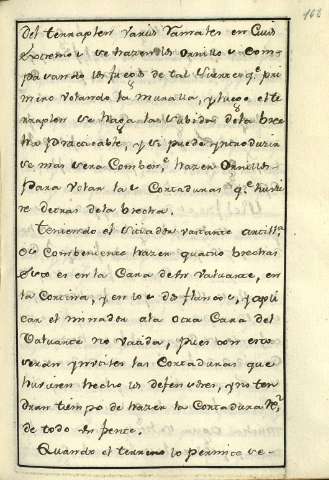 168
del terraplen varios Ramales en Cuis
extremos se hazen los Ornillos com-
pasando los fuegos de tal suerte q.e pri
mero volando la muralla, y luego el te
rraplen se haga la subida de la bre
cha practicable, y si puede yntroduzir
se mas sera Combenᵗᵉ hazen Ornillos
para volar las Cortaduras q.e hubie
re detras de la brecha.
Teniendo el sitiador vastante artill.a
es Combeniente hazen quatro brechas
Esto es en la Cara de un valuarte, en
la Cortina, y en los dos flancos, y apli
car el minador a la otra Cara del
Valuarte no vatida, pues con esto
seran ynutiles las Cortaduras que
hubieren hecho los defensores, y no ten
dran tiempo de hazer la Cortadura
de todo el frente.
Quando el terreno lo permita se-